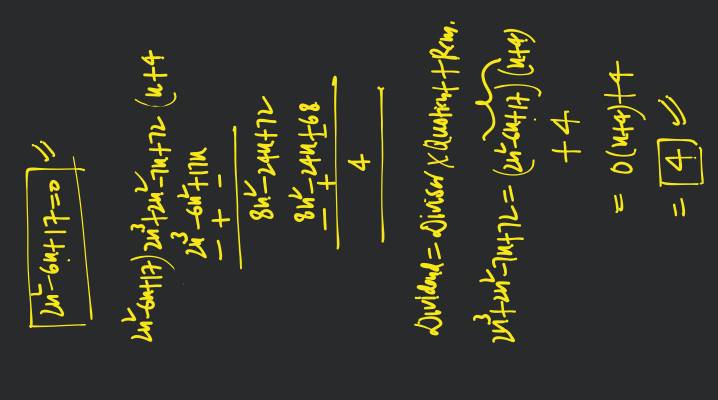 2x²-6x+17=0
2x²-6x+17)2x³+2x²-7x+72(x+4
2x³-6x²+17x
- + -
8x²-24x+72
8x²-24x+68
- + -
4
Dividend = Divisor X Quotient + Rem.
2x³+2x²-7x+72 = (2x²-6x+17)(x+4)
+4
= 0(x+4)+4
= 4